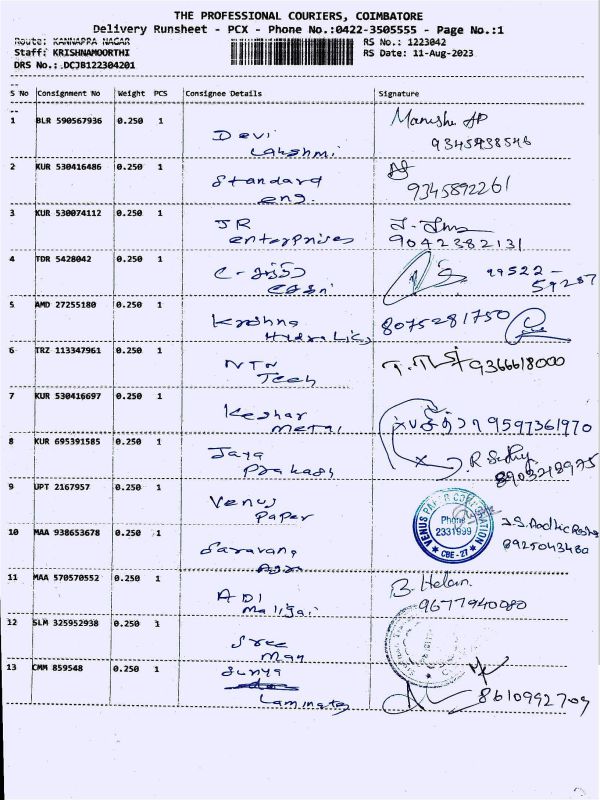 THE PROFESSIONAL COURIERS, COIMBATORE
Delivery Runsheet - PCX - Phone No.:0422-3505555 - Page No.:1
Route: KANNAPPA NAGAR RS No.: 1223042
Staff: KRISHNAMOORTHI RS Date: 11-Aug-2023
DRS No.:.DCJB122304201
S No Consignment No Weight PCS Consignee Details Signature
1 BLR 590567936 0.250 1 Devi Lakshmi Manisha AP
9345938546
2 KUR 530416486 0.250 1 Standard eng.
9345892261
3 KUR 530074112 0.250 1 JR enterprises
9042382131
4 TDR 5428042 0.250 1 99522-
59287
5 AMD 27255180 0.250 1 Krishna Hydralics 8075281750
6 TRZ 113347961 0.250 1 NTN Tech 9366618000
7 KUR 530416697 0.250 1 Keshar metal 9597361970
8 KUR 695391585 0.250 1 Jaya Prakash
8903218975
9 UPT 2167957 0.250 1 Venus Paper
VENUS PAPER CORPORATION
Phone
2331999
CBE-27
10 MAA 938653678 0.250 1 Saravana 8925043480
11 MAA 570570552 0.250 1 ADI B. Helan
9677940080
12 SLM 325952938 0.250 1 Sree
13 CMM 859548 0.250 1 Surya
Laminates 8610992709